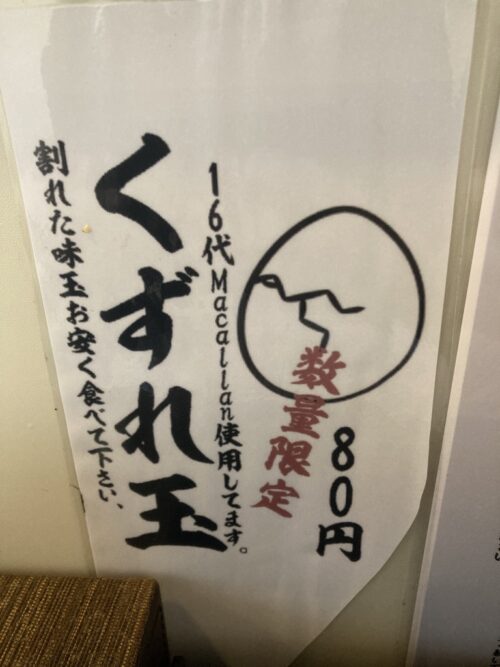 80円
数量限定
16代Macallan使用してます。
くずれ玉
割れた味玉お安く食べて下さい、